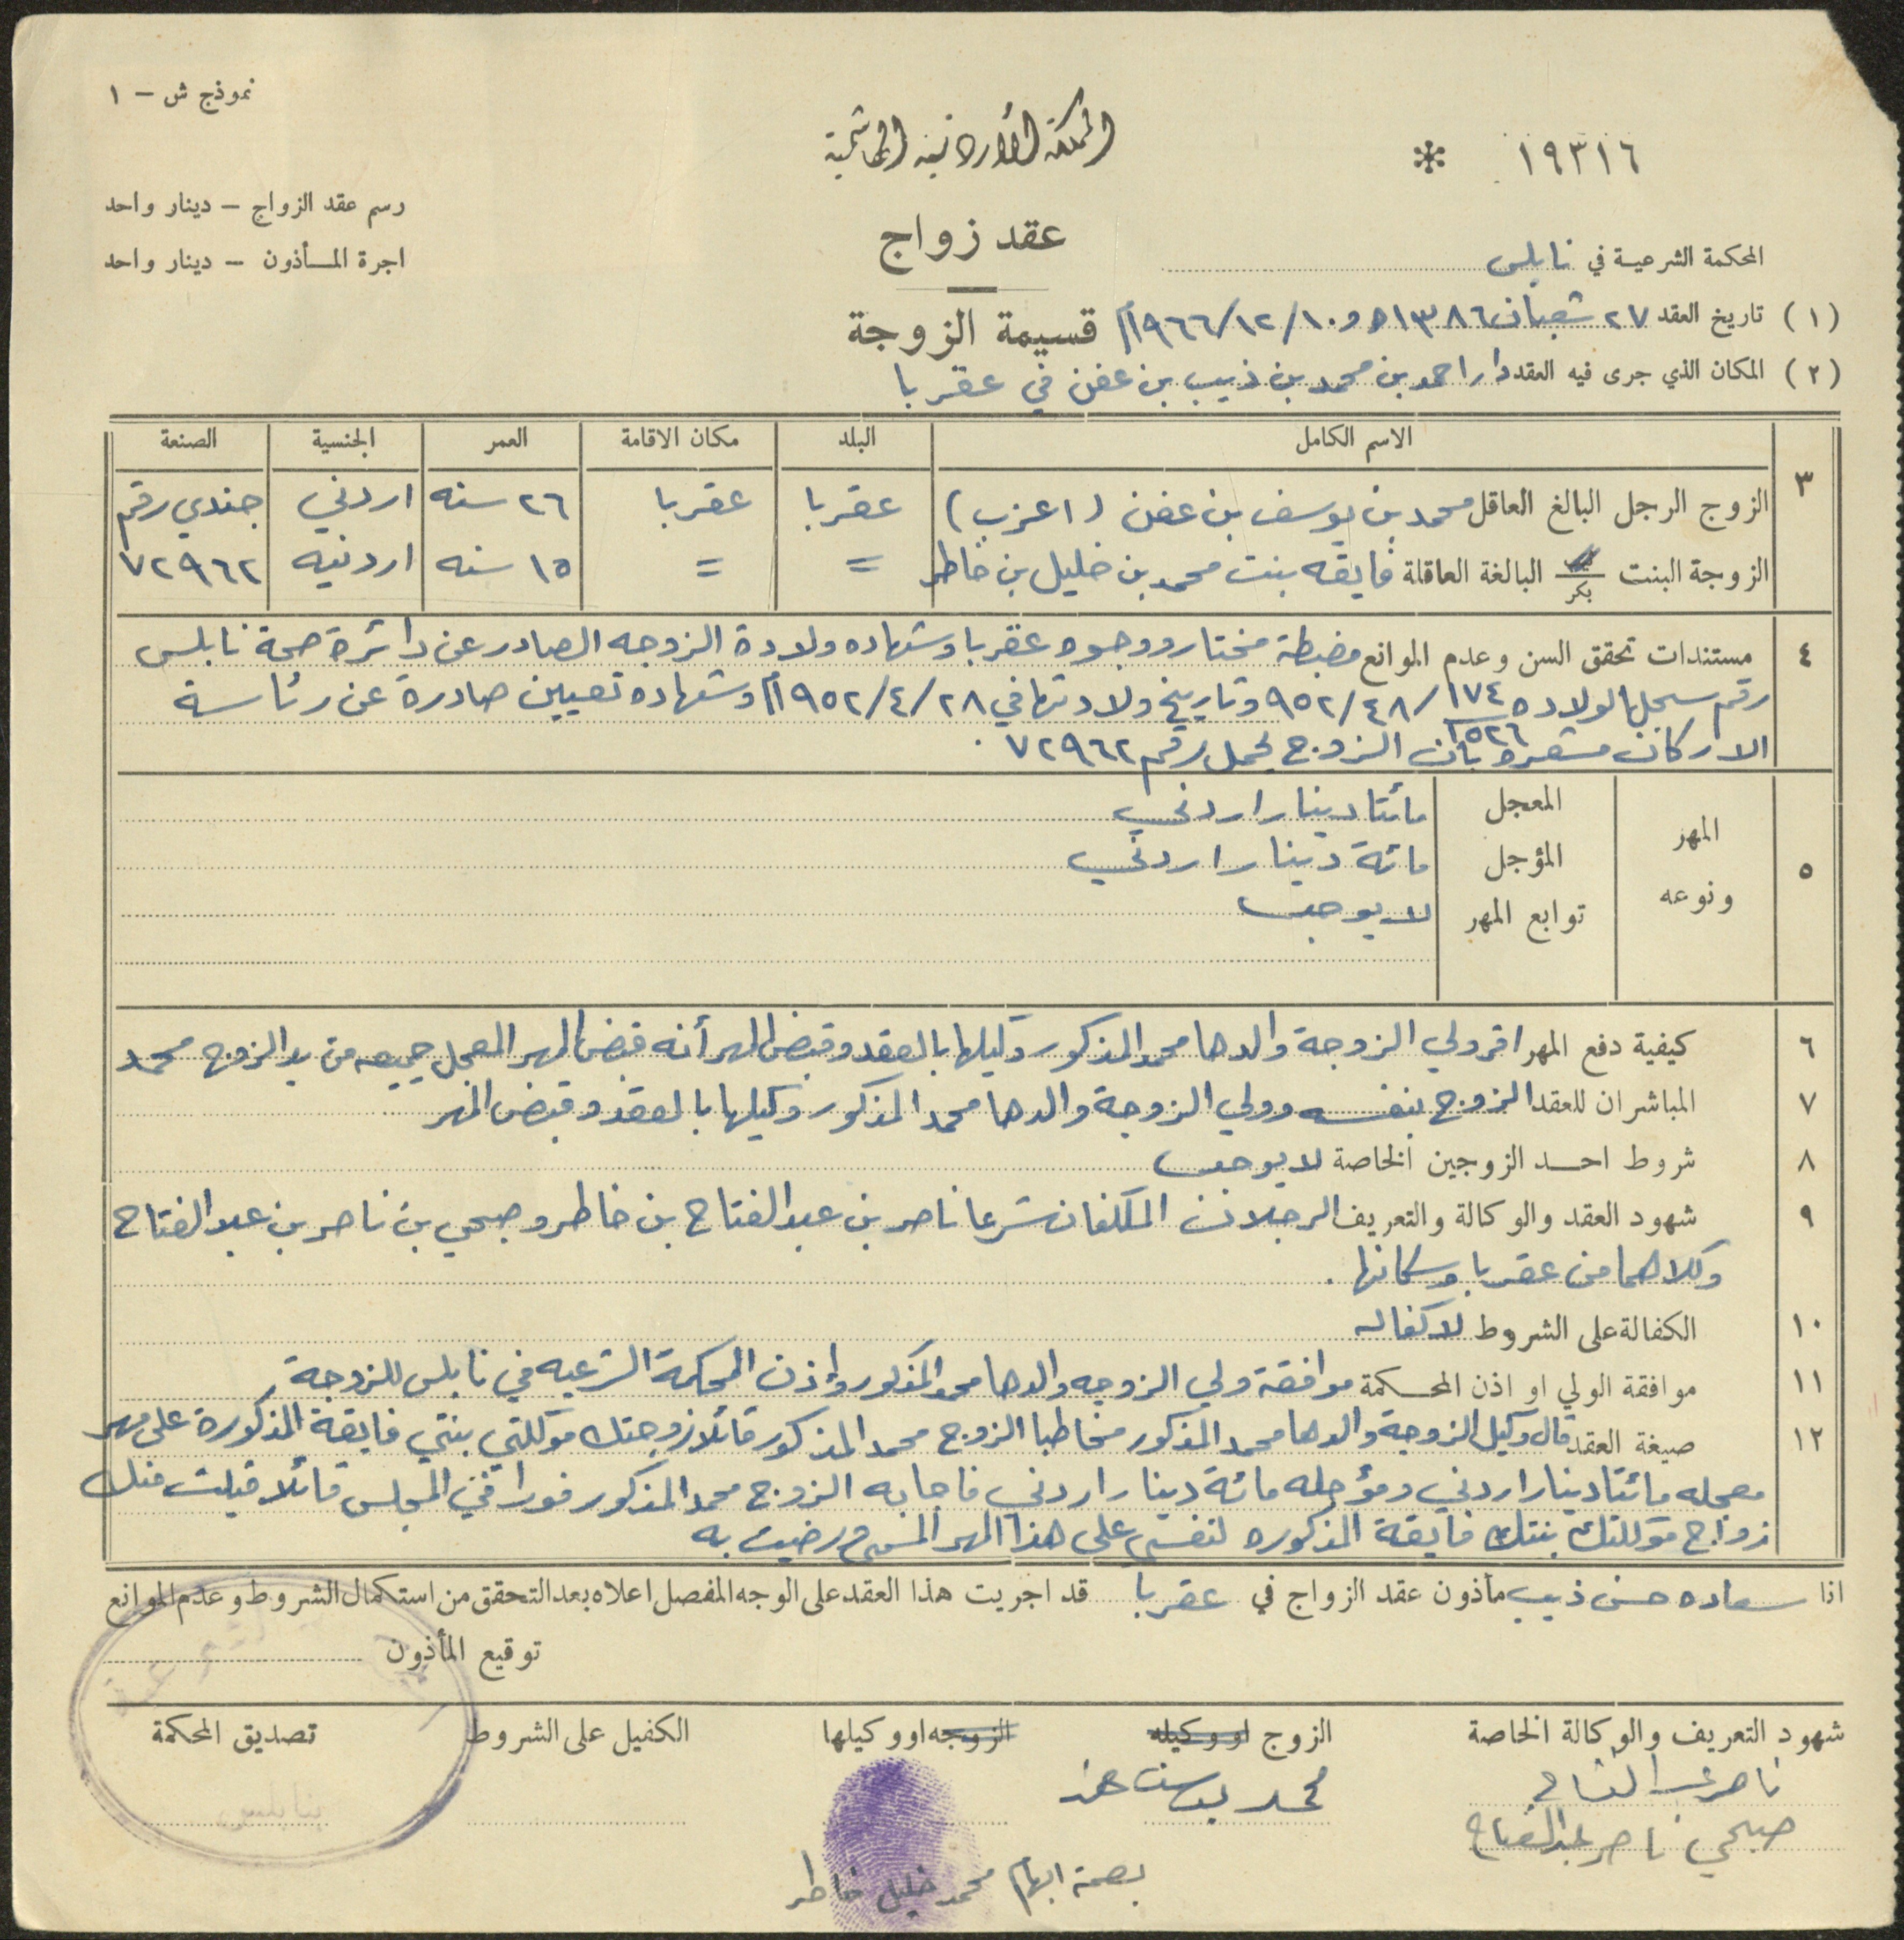 نموذج ش - ١
المملكة الأردنية الهاشمية
١٩٣١٦ *
رسم عقد الزواج - دينار واحد
اجرة المأذون - دينار واحد
عقد زواج
المحكمة الشرعية في نابلس
(١) تاريخ العقد ٢٧ شعبان ١٣٨٦ﻫ و ١٠/١٢/١٩٦٦م
قسيمة الزوجة
(٢) المكان الذي جرى فيه العقد دار احمد بن محمد بن ذيب بن عفن في عقربا
٣ الاسم الكامل البلد مكان الاقامة العمر الجنسية الصنعة
الزوج الرجل البالغ العاقل محمد بن يوسف بن عفن (اعزب) عقربا عقربا ٢٦ سنه اردني جندي رقم
الزوجة البنت بكر البالغة العاقلة فايقه بنت محمد بن خليل بن خاطر = = ١٥ سنه اردنيه ٧٢٩٦٢
٤ مستندات تحقق السن وعدم الموانع مضبطة مختار ووجوه عقربا وشهاده ولادة الزوجه الصادر عن دائرة صحة نابلس
رقم سجل الولاده ١٧٤/١٥٢٦ ٩٥٢/٤٨/ وتاريخ ولادتها في ٢٨/٤/١٩٥٢م وشهاده تعيين صادرة عن رئاسة
الاركان مشعره بأن الزوج يحمل رقم ٧٢٩٦٢.
٥ المهر ونوعه
المعجل مائتا دينار اردني
المؤجل مائة دينار اردني
توابع المهر لا يوجد
٦ كيفية دفع المهر اقر ولي الزوجة والدها محمد المذكور وكيلها بالعقد وقبض المهر أنه قبض المهر المعجل جميعه من يد الزوج محمد
٧ المباشران للعقد الزوج بنفسه وولي الزوجة والدها محمد المذكور وكيلها بالعقد وقبض المهر
٨ شروط احد الزوجين الخاصة لا يوجد
٩ شهود العقد والوكالة والتعريف الرجلان المكلفان شرعا ناصر بن عبد الفتاح بن خاطر وصبحي بن ناصر بن عبد الفتاح
وكلاهما من عقربا وسكانها.
١٠ الكفالة على الشروط لا كفاله
١١ موافقة الولي او اذن المحكمة موافقة ولي الزوجه والدها محمد المذكور وإذن المحكمة الشرعيه في نابلس للزوجة
١٢ صيغة العقد قال وكيل الزوجة والدها محمد المذكور مخاطبا الزوج محمد المذكور قائلا زوجتك موكلتي بنتي فايقة المذكورة على مهر
معجله مائتا دينار اردني ومؤجله مائة دينار اردني فاجابه الزوج محمد المذكور فورا في المجلس قائلا قبلت منك
زواج موكلتك بنتك فايقة المذكوره لنفسي على هذا المهر المسمى ورضيت به
انا سعاده حسن ذيب مأذون عقد الزواج في عقربا قد اجريت هذا العقد على الوجه المفصل اعلاه بعد التحقق من استكمال الشروط وعدم الموانع
توقيع المأذون
شهود التعريف والوكالة الخاصة الزوج او وكيله الزوجه او وكيلها الكفيل على الشروط تصديق المحكمة
ناصر عبد الفتاح
محمد يوسف عفن
صبحي ناصر عبد الفتاح
بصمة ابهام محمد خليل خاطر